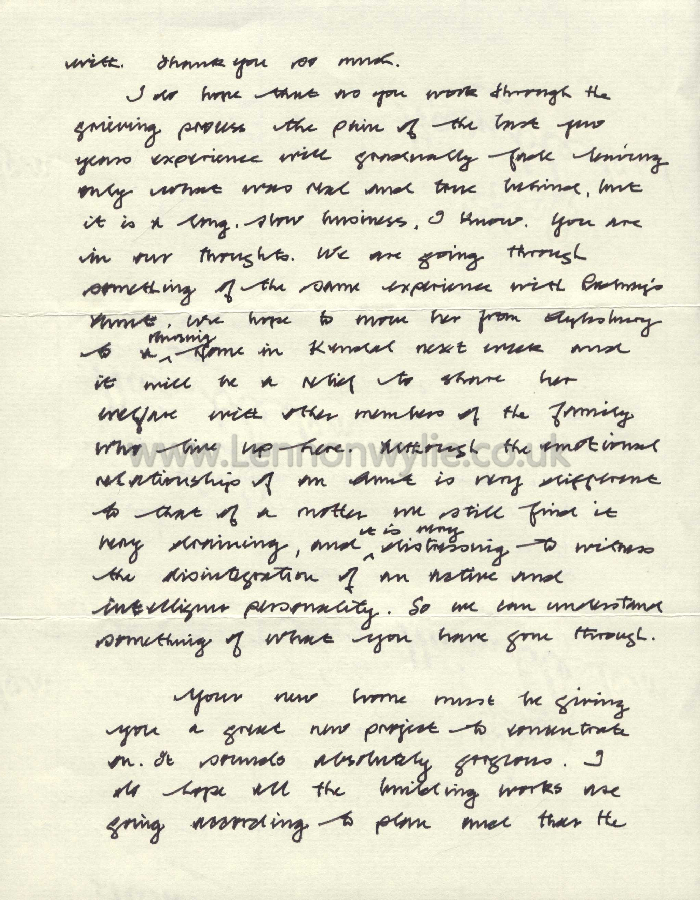 with. Thank you so much.
I do hope that as you work through the
grieving process the pain of the last few
years experience will gradually fade leaving
only what was real and true behind, but
it is a long, slow business, I know. You are
in our thoughts. We are going through
something of the same experience with
Aunt. We hope to move her from Aylesbury
nursing
to a ^ home in Kendal next week and
it will be a relief to share her
welfare with other members of the family
who live up here. Although the emotional
www.Lennonwylie.co.uk
relationship of an Aunt is very different
to that of a mother we still find it
it is very
very draining, and ^ distressing to witness
the disintegration of an active and
intelligent personality. So we can understand
something of what you have gone through.
Your new home must be giving
you a great new project to concentrate
on. It sounds absolutely gorgeous. I
do hope all the building works are
going according to plan and that the